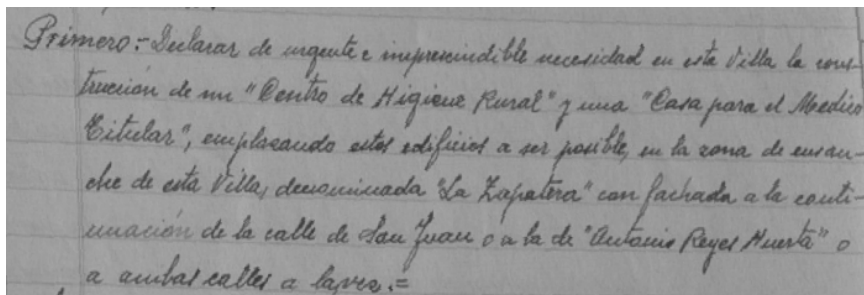 Primero:- Declarar de urgente e imprescindible necesidad en esta Villa la cons-
trucción de un "Centro de Higiene Rural" y una "Casa para el Medico
Titular", emplazando estos edificios a ser posible, en la zona de ensan-
che de esta Villa, denominada "La Zapatera" con fachada a la conti-
nuación de la calle de San Juan o a la de "Antonio Reyes Huerta" o
a ambas calles a la vez.=